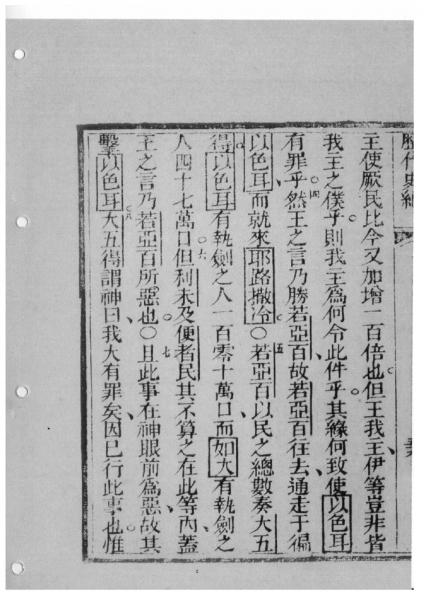 主使厥民比今又加增一百倍也但王我主伊等豈非皆
我主之僕乎則我主爲何令此件乎其緣何致使以色耳
有罪乎○四然王之言乃勝若亞百故若亞百往去通走于徧
以色耳而就來耶路撒冷○五若亞百以民之總數奏大五
得以色耳有執劍之人一百零十萬口而如大有執劍之
人四十七萬口○六但利未及便者民其不算之在此等內蓋
王之言乃若亞百所惡也○七且此事在神眼前爲惡故其
擊以色耳○八大五得謂神曰我大有罪矣因已行此事也惟